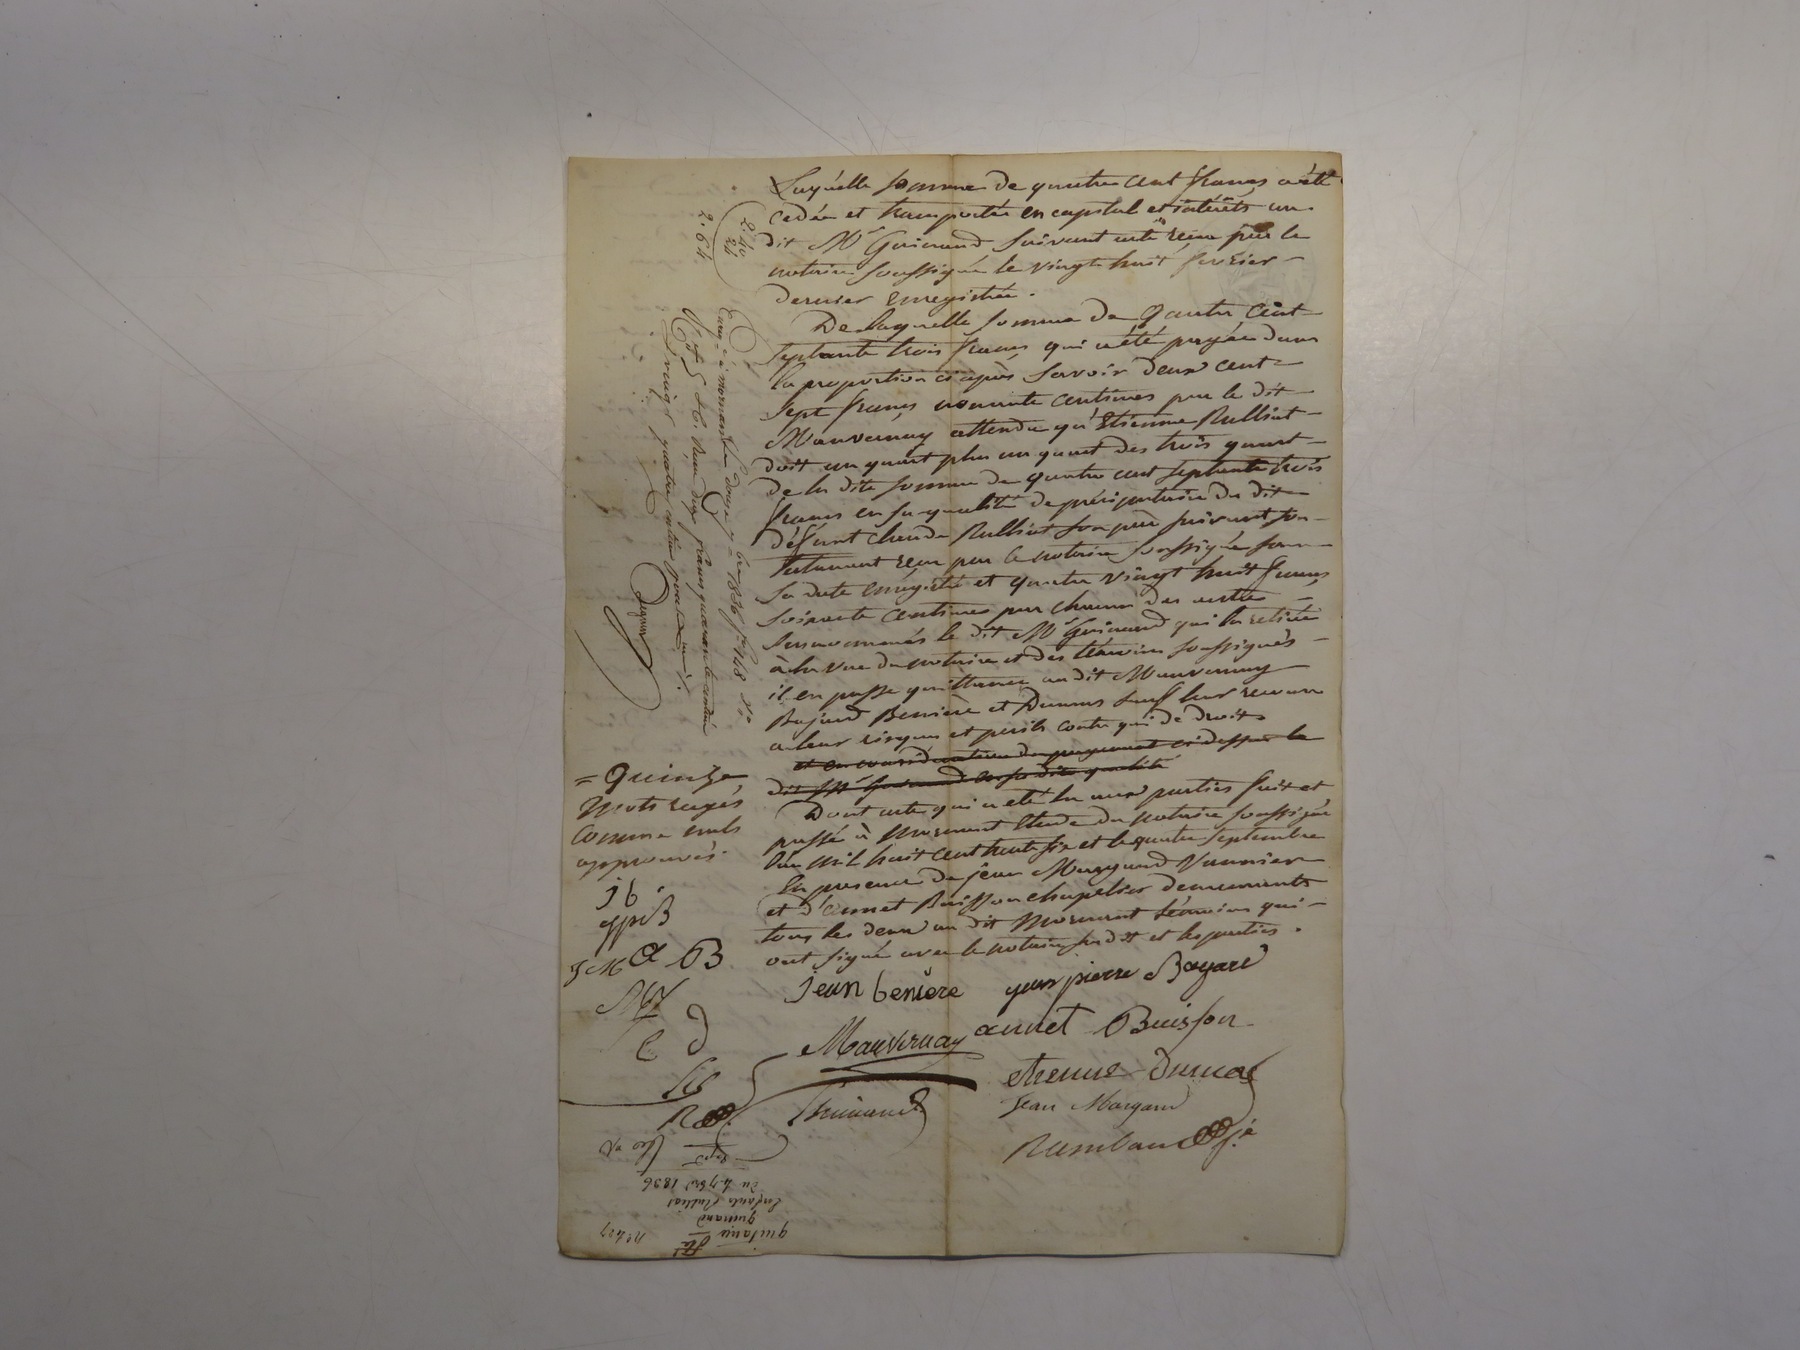 Laquelle somme de quatre cent francs a été
cédée et transportée en capital et intérêts au
dit Me Guinand suivant acte reçu par le
notaire soussigné le vingt huit fevrier
dernier enregistrée.
De laquelle somme de Quatre Cent
septante trois francs qui a été payée dans
la proportion ci après, savoir deux cent
sept francs nonante centimes par le dit
Mauvernay attendu qu'Etienne Rulliat
doit un quart plus un quart des trois quart
de la dite somme de quatre cent septante trois
francs en sa qualité de préciputaire du dit
défunt Claude Rulliat son père suivant son
testament reçu par le notaire soussigné sous
sa date enregistré et quatre vingt huit francs
soixante centimes par chacun des autres
surnommés le dit Me Guinand qui la retirée
à la vue du notaire et des témoins soussignés
il en passe quittance au dit Mauvernay
Bajard Benière et Dumas sauf leur recours
a leur risques et perils contre qui de droit
et en considération du payement ci dessus le
dit Me Guinand en sa dite qualité
Dont acte qui a été lu aux parties fait et
passé à Mornant Etude du notaire soussigné
L'an mil huit cent trente six et le quatre septembre
En presence de Jean Margand Vannier
et d'annet Buisson chapelier demeurants
tous les deux au dit Mornant témoins qui
ont signé avec le notaire sus dit et les parties.
jean benière jean pierre Bayard
Mauvernay annet Buisson
etienne Dumas
Guinand Jean Margand
Rambaud
2.40
24
2.64
= Quinze
mots rayés
comme nuls
approuvés.
J b
J M a B
M
E D
quitance
guinand
Enfants Rulliat
du 4 7bre 1836